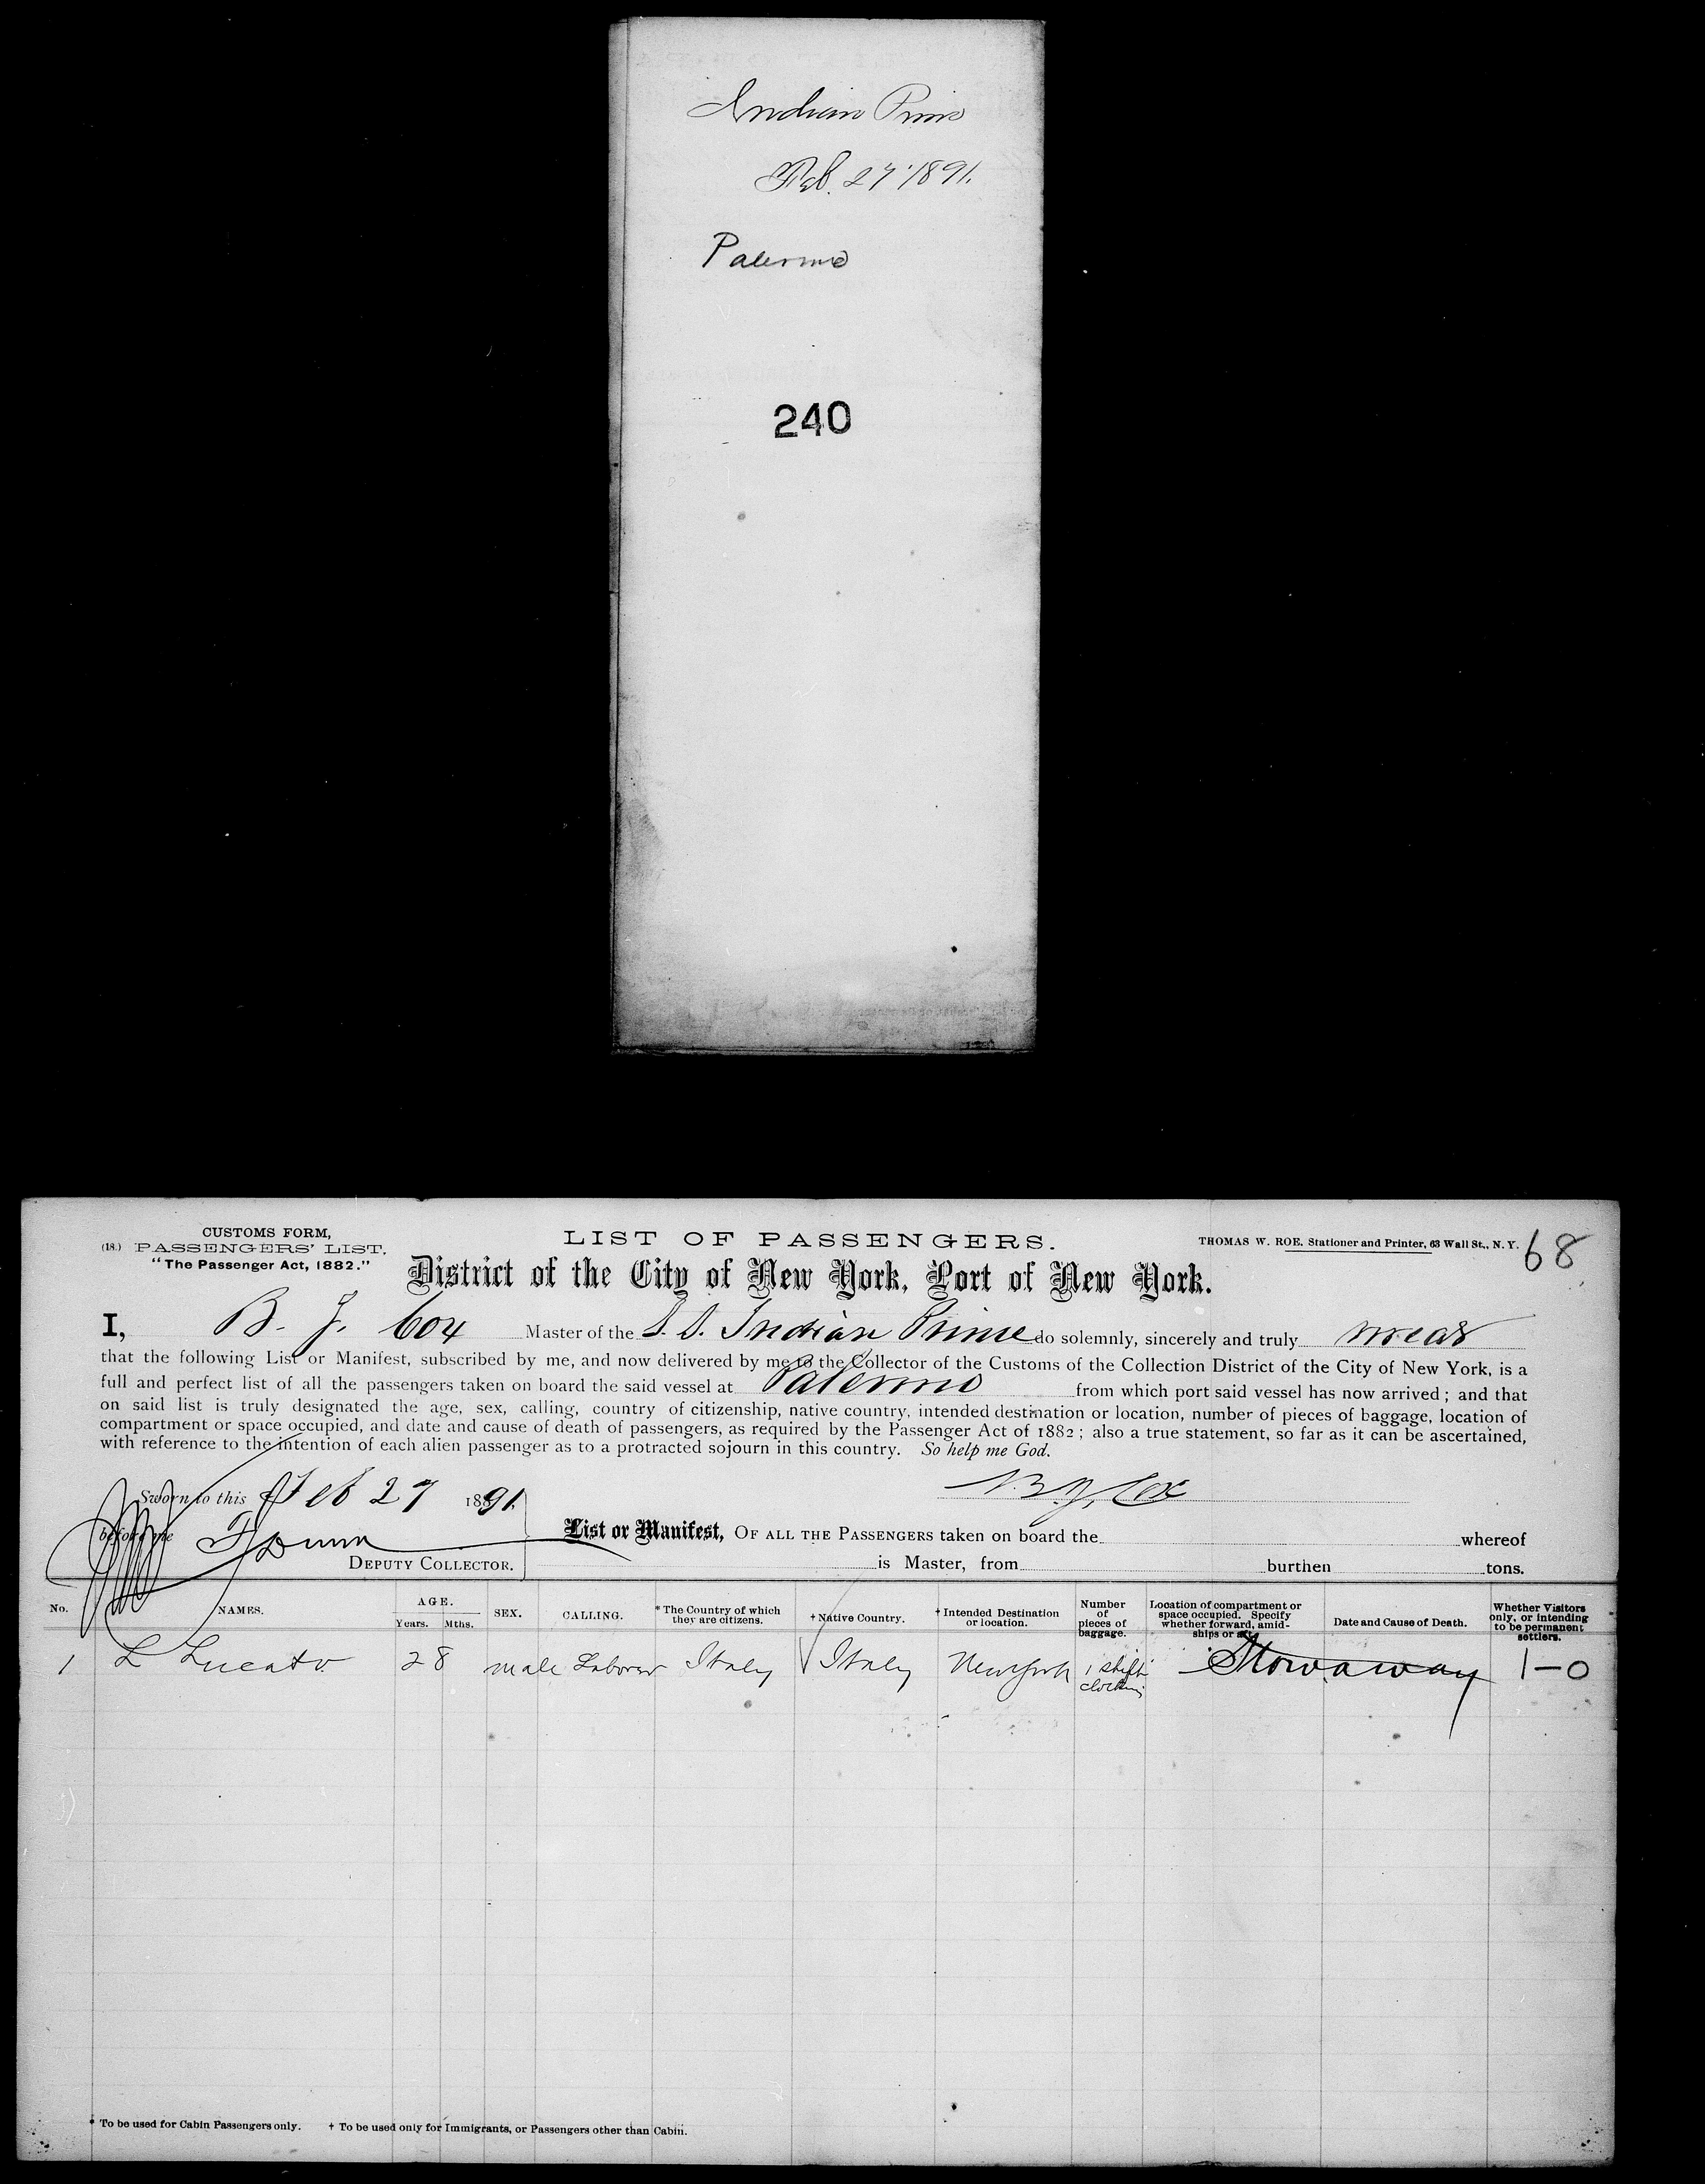 Indian Prince
Feb. 27 1891.
Palermo
240
CUSTOMS FORM,
(18.) PASSENGERS' LIST.
"The Passenger Act, 1882."
LIST OF PASSENGERS.
THOMAS W. ROE, Stationer and Printer, 63 Wall St., N. Y.
68
District of the City of New York, Port of New York.
I, B. J. Cox Master of the S. S. Indian Prince do solemnly, sincerely and truly swear
that the following List or Manifest, subscribed by me, and now delivered by me to the Collector of the Customs of the Collection District of the City of New York, is a
full and perfect list of all the passengers taken on board the said vessel at Palermo from which port said vessel has now arrived; and that
on said list is truly designated the age, sex, calling, country of citizenship, native country, intended destination or location, number of pieces of baggage, location of
compartment or space occupied, and date and cause of death of passengers, as required by the Passenger Act of 1882; also a true statement, so far as it can be ascertained,
with reference to the intention of each alien passenger as to a protracted sojourn in this country. So help me God.
Sworn to this Feb 27 1891.
B. J. Cox
before me
DEPUTY COLLECTOR.
List or Manifest, OF ALL THE PASSENGERS taken on board the whereof
is Master, from burthen tons.
No. NAMES. AGE. Years. Mths. SEX. CALLING. * The Country of which they are citizens. † Native Country. † Intended Destination or location. Number of pieces of baggage. Location of compartment or space occupied. Specify whether forward, amidships or aft. Date and Cause of Death. Whether Visitors only, or intending to be permanent settlers.
1 L Lucato 28 male Laborer Italy Italy New York 1 shift clothing Stowaway 1-0
* To be used for Cabin Passengers only. † To be used only for Immigrants, or Passengers other than Cabin.